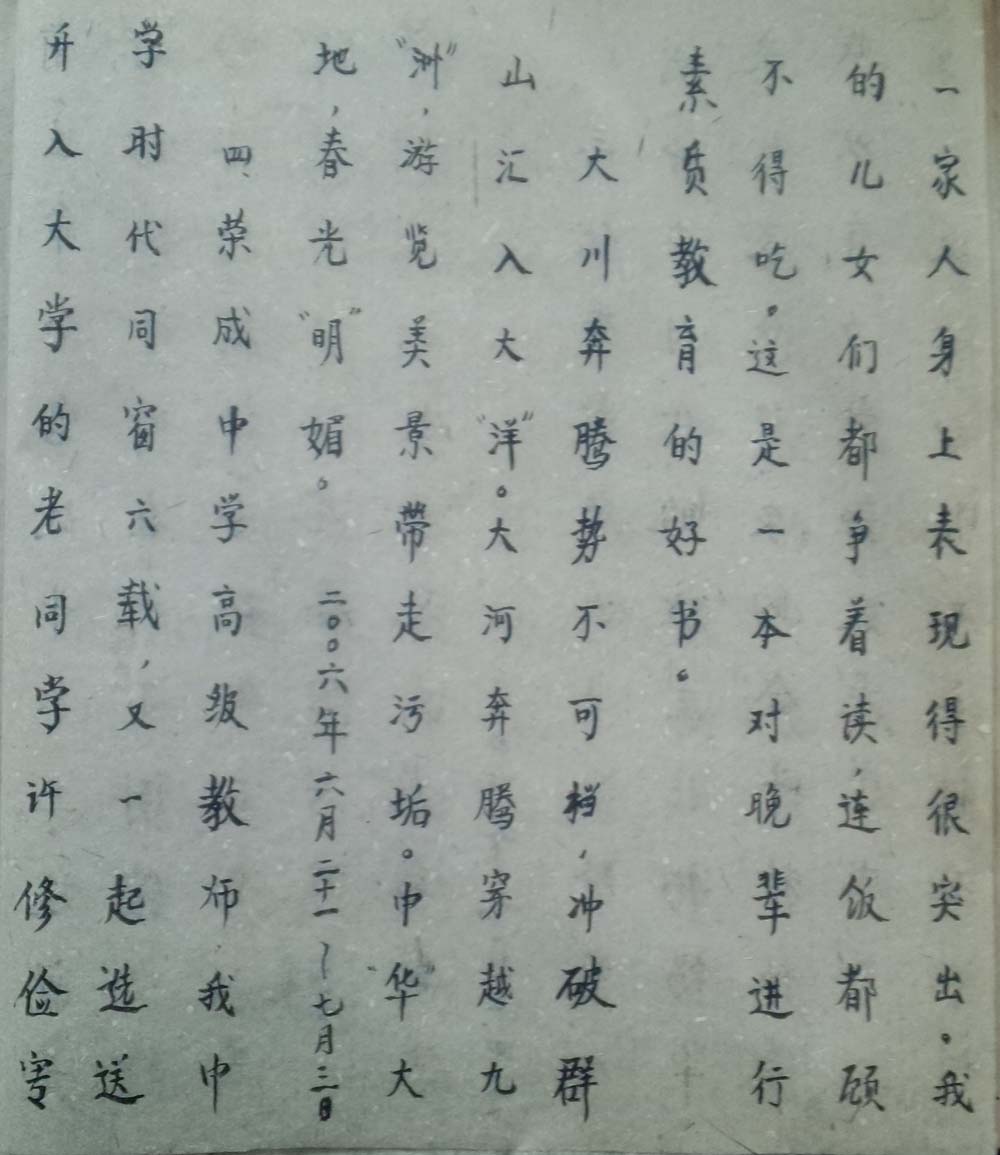 一家人身上表现得很突出。我
的儿女们都争着读，连饭都顾
不得吃。这是一本对晚辈进行
素质教育的好书。
大川奔腾势不可档，冲破群
山汇入大“洋”。大河奔腾穿越九
“洲”，游览美景带走污垢。中“华”大
地，春光“明”媚。 二〇〇六年六月二十一～七月三日
四、荣成中学高级教师，我中
学时代同窗六载，又一起选送
升入大学的老同学许修俭写